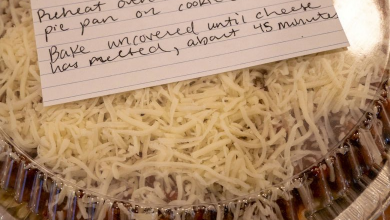 Preheat oven
pie pan on cookie
Bake uncovered until cheese
has melted, about 45 minutes